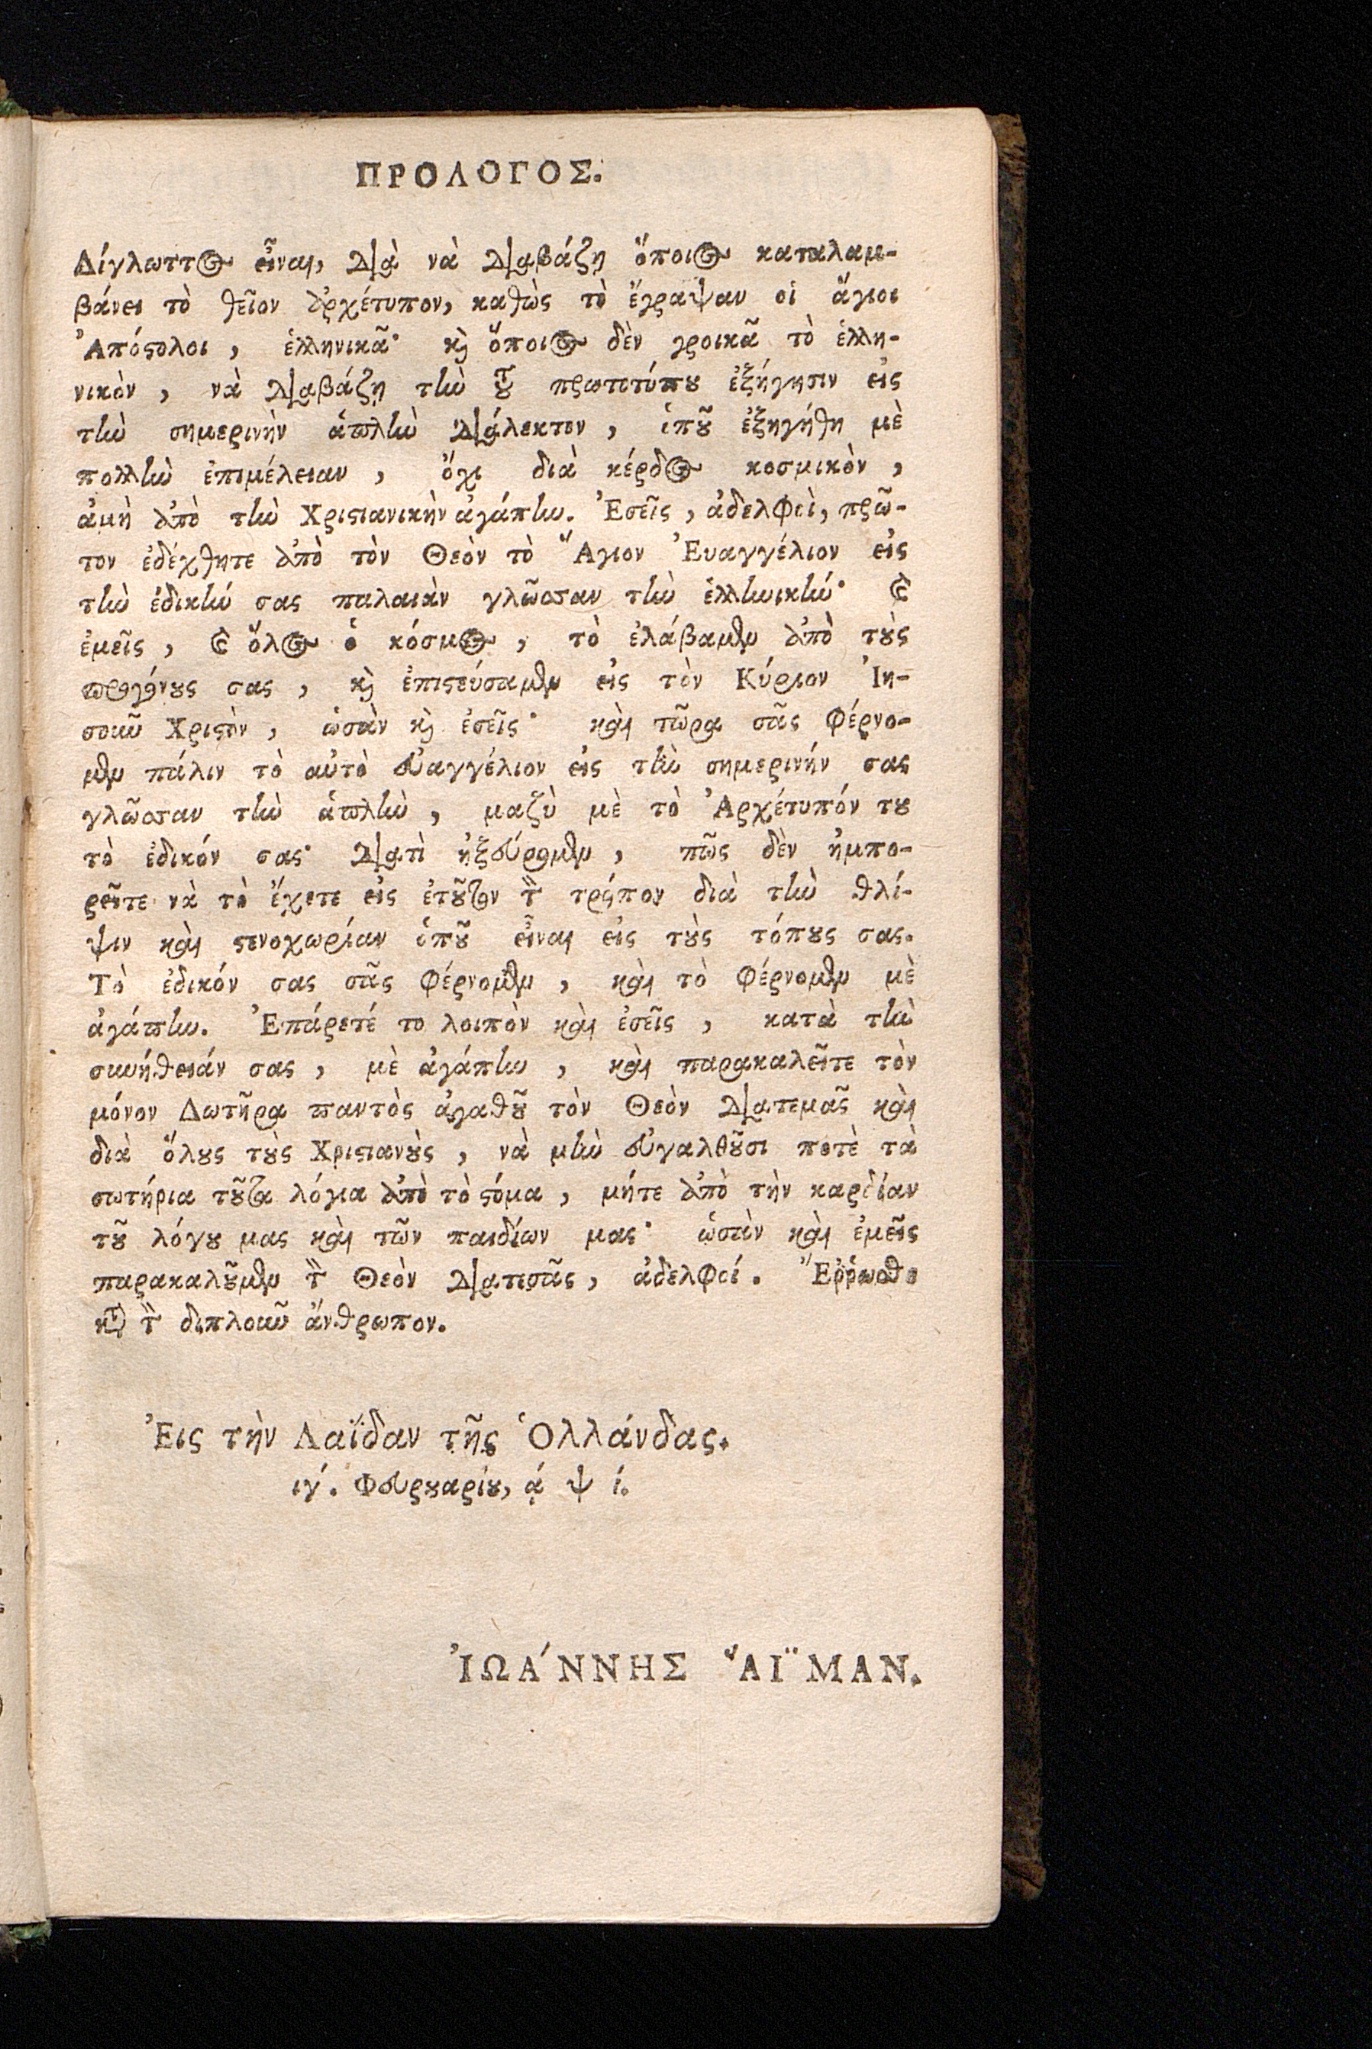 ΠΡΟΛΟΓΟΣ.
Δίγλωττος εἶναι, διὰ νὰ διαβάζῃ ὅποιος καταλαμ-
βάνει τὸ θεῖον ἀρχέτυπον, καθὼς τὸ ἔγραψαν οἱ ἅγιοι
Ἀπόϛολοι, ἑλληνικᾶ· κὶ ὅποιος δὲν γροικᾶ τὸ ἑλλη-
νικὸν, νὰ διαβάζῃ τὴν τȣ͂ πρωτοτύπȣ ἐξήγησιν εἰς
τὴν σημερινὴν ἁπλὴν διάλεκτον, ὁπȣ͂ ἐξηγήθη μὲ
πολλὴν ἐπιμέλειαν, ὄχι διὰ κέρδος κοσμικὸν,
ἀμὴ ἀπὸ τὴν Χριϛιανικὴν ἀγάπην. Ἐσεῖς, ἀδελφοὶ, πρῶ-
τον ἐδέχθητε ἀπὸ τὸν Θεὸν τὸ Ἅγιον Ἐυαγγέλιον εἰς
τὴν ἐδικήν σας παλαιὰν γλῶσσαν τὴν ἑλληνικήν· καὶ
ἐμεῖς, καὶ ὅλος ὁ κόσμος, τὸ ἐλάβαμεν ἀπὸ τȣ̀ς
προγόνȣς σας, κὶ ἐπιϛεύσαμεν εἰς τὸν Κύριον Ἰη-
σοῦν Χριϛὸν, ὡσὰν κὶ ἐσεῖς· καὶ τῶρα σᾶς φέρνο-
μεν πάλιν τὸ αὐτὸ εὐαγγέλιον εἰς τὴν σημερινήν σας
γλῶσσαν τὴν ἁπλὴν, μαζὺ μὲ τὸ Ἀρχέτυπόν τȣ
τὸ ἐδικόν σας· διατὶ ἠξεύρομεν, πῶς δὲν ἠμπο-
ρεῖτε νὰ τὸ ἔχετε εἰς ἐτȣ͂τον τὸν τρόπον διὰ τὴν θλί-
ψιν καὶ ϛενοχωρίαν ὁπȣ͂ εἶναι εἰς τȣ̀ς τόπȣς σας.
Τὸ ἐδικόν σας σᾶς φέρνομεν, καὶ τὸ φέρνομεν μὲ
ἀγάπην. Ἐπάρετέ το λοιπὸν καὶ ἐσεῖς, κατὰ τὴν
συνήθειάν σας, μὲ ἀγάπην, καὶ παρακαλεῖτε τὸν
μόνον Δωτῆρα παντὸς ἀγαθȣ͂ τὸν Θεὸν διατεμᾶς καὶ
διὰ ὅλȣς τȣ̀ς Χριϛιανȣ̀ς, νὰ μὴν εὐγαλθȣ͂σι ποτὲ τὰ
σωτήρια τȣ͂τα λόγια ἀπὸ τὸ ϛόμα, μήτε ἀπὸ τὴν καρδίαν
τȣ͂ λόγȣ μας καὶ τῶν παιδίων μας· ὡσὰν καὶ ἐμεῖς
παρακαλȣ͂μεν τὸν Θεὸν διατεσᾶς, ἀδελφοί. Ἔῤῥωσθε
κατὰ τὸν διπλοῦν ἄνθρωπον.
Ἐις τὴν Λαΐδαν τῆς Ὁλλάνδας.
ιγ́. Φευρȣαρίȣ, ͵ά ψ ί.
ἸΩΆΝΝΗΣ ἍΪΜΑΝ.